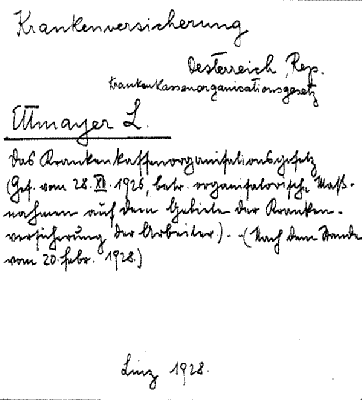 Krankenversicherung
Oesterreich, Rep.
Krankenkassenorganisationsgesetz
Ullmayer L.
Das Krankenkassenorganisationsgesetz
(Ges. vom 28. XII. 1926, betr. organisatorische Maß-
nahmen auf dem Gebiete der Kranken-
versicherung der Arbeiter). - (Nach dem Stande
vom 20. Febr. 1928.)
Linz 1928.